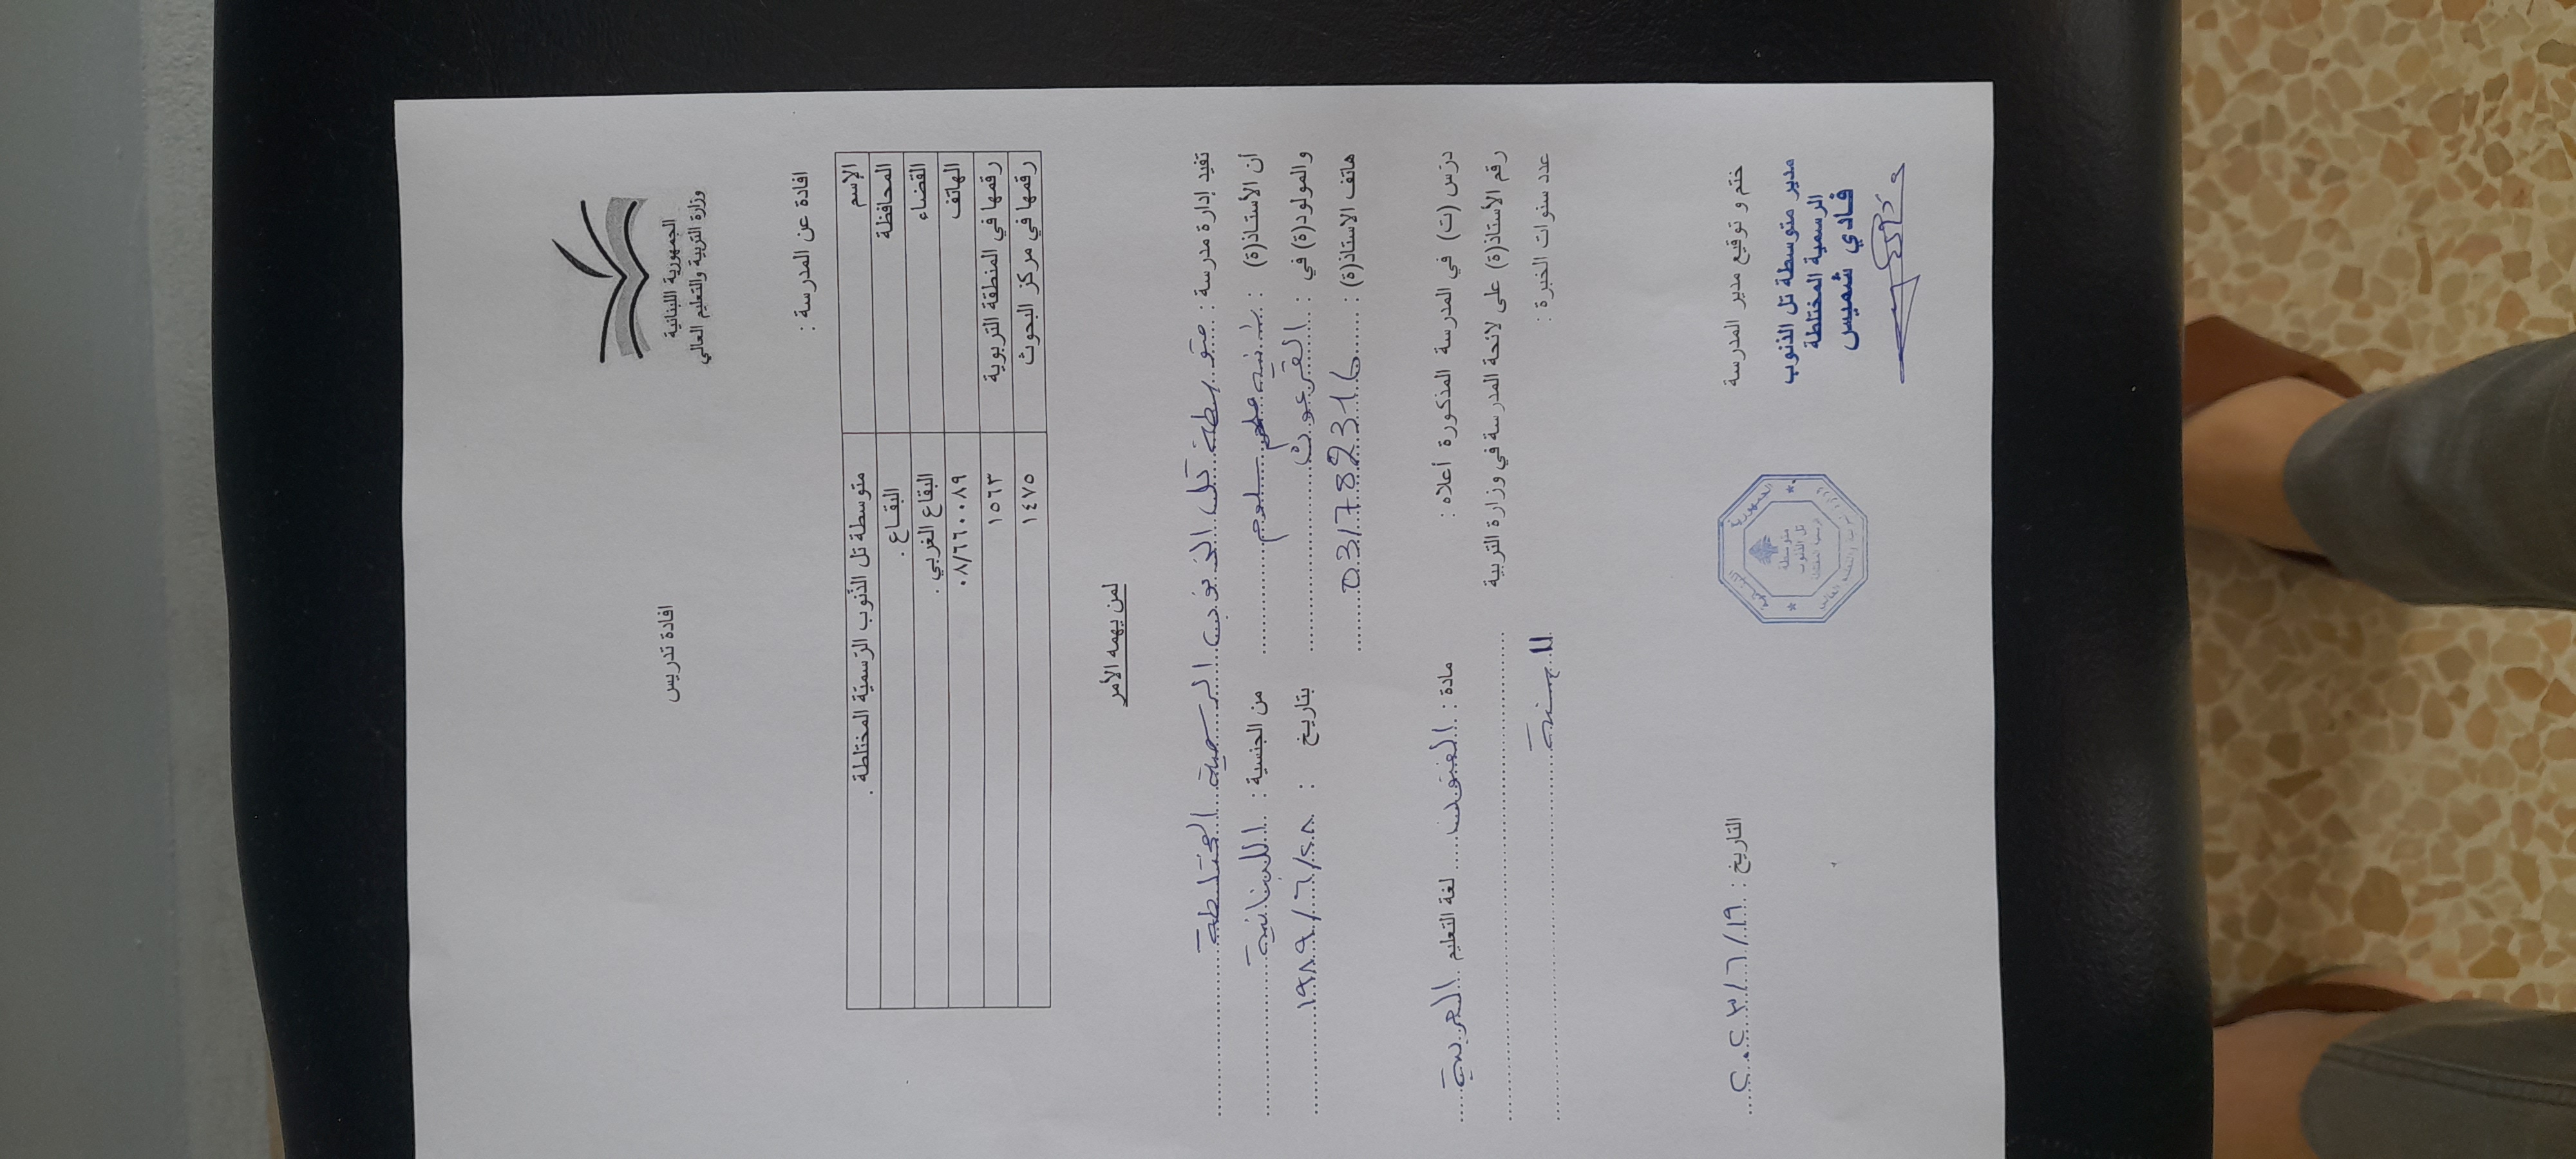 الجمهورية اللبنانية
وزارة التربية والتعليم العالي
افادة تدريس
افادة عن المدرسة :
الإسم متوسطة تل الذنوب الرّسميّة المختلطة .
المحافظة البقـاع .
القضاء البقاع الغربي .
الهاتف ٠٨/٦٦٠٠٨٩
رقمها في المنطقة التربوية ١٥٦٣
رقمها في مركز البحوث ١٤٧٥
لمن يهمه الأمر
تفيد إدارة مدرسة : متوسطة تل الذنوب الرسمية المختلطة
أن الأستاذ(ة) : سلوم من الجنسية : اللبنانية
والمولود(ة) في : القرعون بتاريخ : ١٩٨٩/٦/٢٨
هاتف الاستاذ(ة) : 03/782316
درّس (ت) في المدرسة المذكورة أعلاه : مادة : الفنون لغة التعليم العربية
رقم الأستاذ(ة) على لائحة المدرسة في وزارة التربية
عدد سنوات الخبرة : ١١ سنة
ختم و توقيع مدير المدرسة التاريخ : ٢٠٢٣/٦/١٩
مدير متوسطة تل الذنوب
الرسمية المختلطة
فـادي شميس
الجمهورية
متوسطة
تل الذنوب